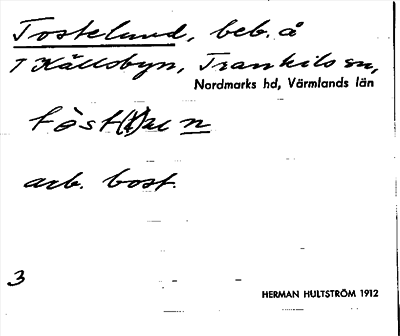 Tostelund, beb. å
1 Källsbyn, Trankils sn,
Nordmarks hd, Värmlands län
arb. bost.
3
HERMAN HULTSTRÖM 1912